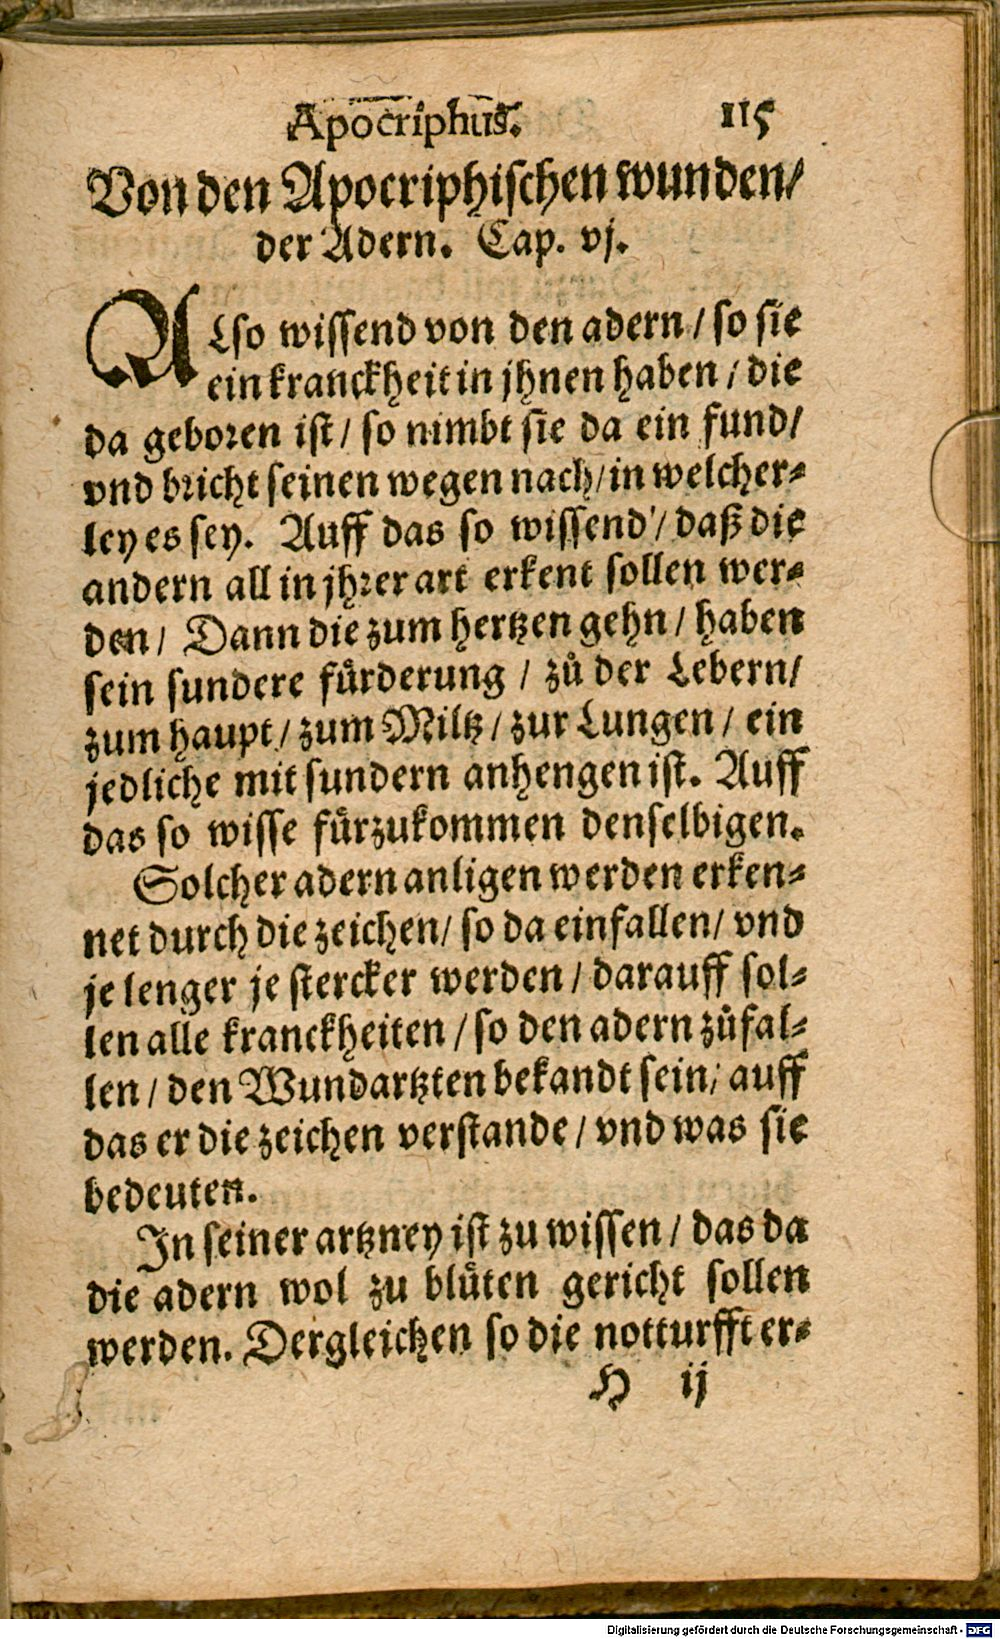 Apocriphus. 115
Von den Apocriphischen wunden/
der Adern. Cap. vj.
ALso wissend von den adern / so sie
ein kranckheit in jhnen haben / die
da geboren ist / so nimbt sie da ein fund/
vnd bricht seinen wegen nach / in welcher-
ley es sey. Auff das so wissend / daß die
andern all in jhrer art erkent sollen wer-
den / Dann die zum hertzen gehn / haben
sein sundere fürderung / zů der Lebern/
zum haupt / zum Miltz / zur Lungen / ein
jedliche mit sundern anhengen ist. Auff
das so wisse fürzukommen denselbigen.
Solcher adern anligen werden erken-
net durch die zeichen / so da einfallen / vnd
je lenger je stercker werden / darauff sol-
len alle kranckheiten / so den adern zůfal-
len / den Wundartzten bekandt sein / auff
das er die zeichen verstande / vnd was sie
bedeuten.
In seiner artzney ist zu wissen / das da
die adern wol zu blůten gericht sollen
werden. Dergleichen so die notturfft er-
H ij
Digitalisierung gefördert durch die Deutsche Forschungsgemeinschaft - DFG